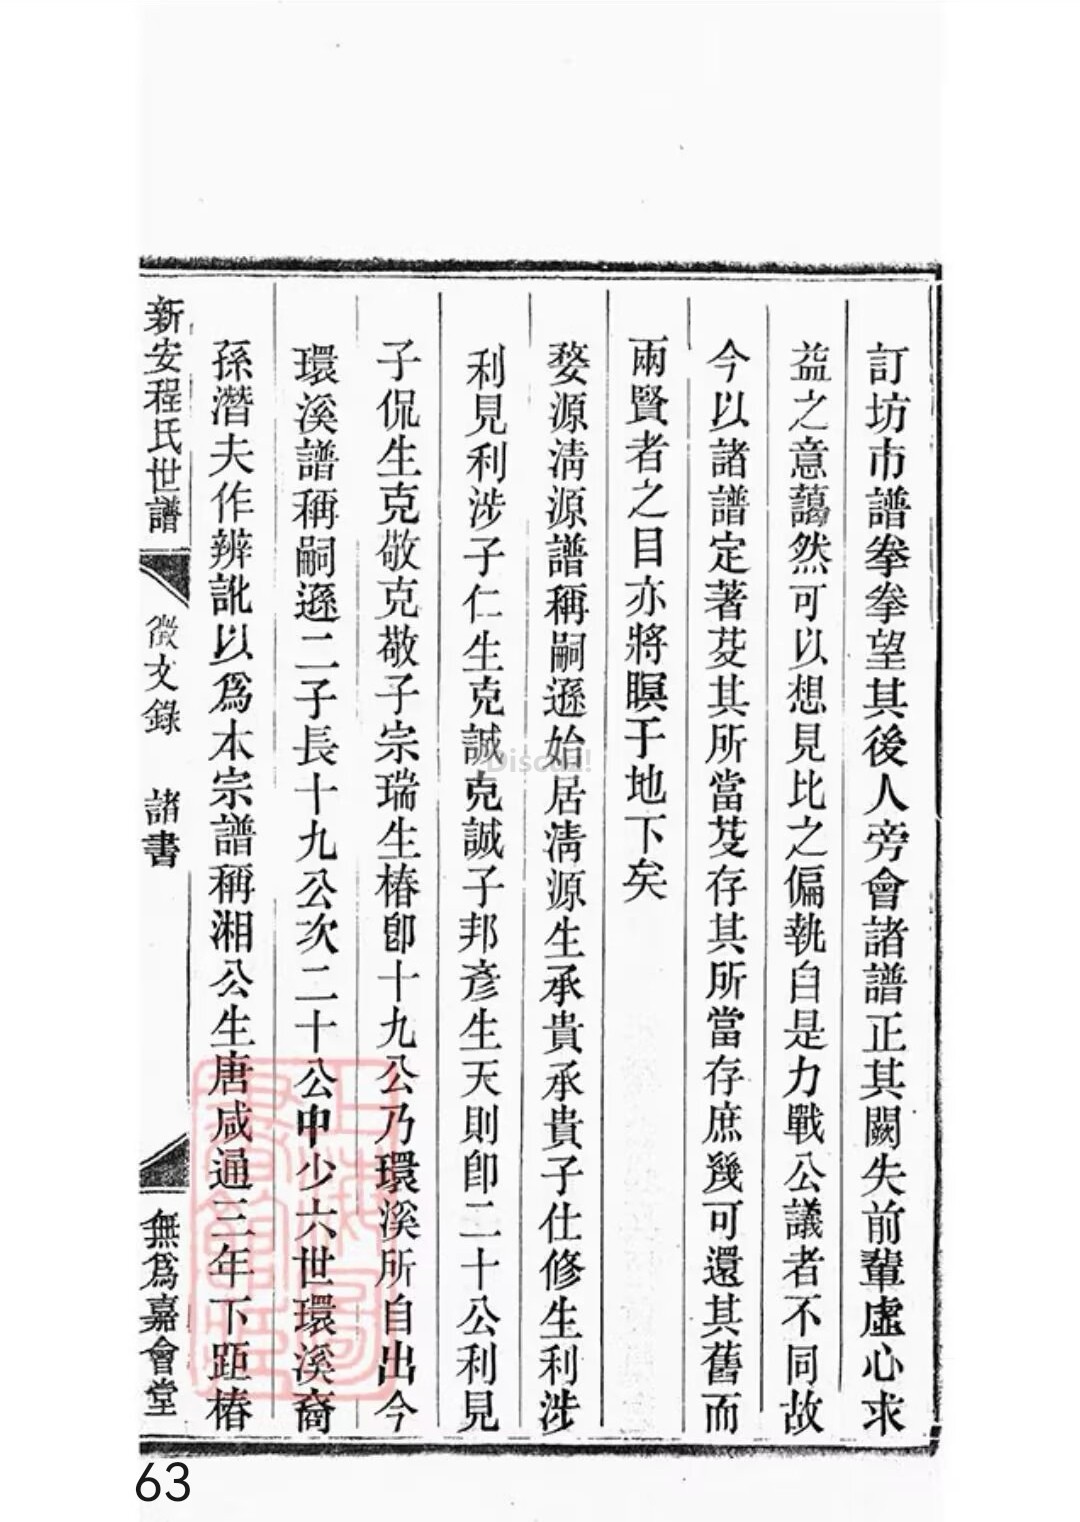 訂坊市譜拳拳望其後人旁會諸譜正其闕失前輩虛心求
益之意藹然可以想見比之偏執自是力戰公議者不同故
今以諸譜定著芟其所當芟存其所當存庶幾可還其舊而
兩賢者之目亦將瞑于地下矣
婺源清源譜稱嗣遜始居清源生承貴承貴子仕修生利涉
利見利涉子仁生克誠克誠子邦彥生天則卽二十公利見
子侃生克敬克敬子宗瑞生椿卽十九公乃環溪所自出今
環溪譜稱嗣遜二子長十九公次二十公中少六世環溪裔
孫潛夫作辨訛以爲本宗譜稱湘公生唐咸通三年下距椿
新安程氏世譜
徵文錄 諸書
無爲嘉會堂
上海圖書館藏
Discuz!
63